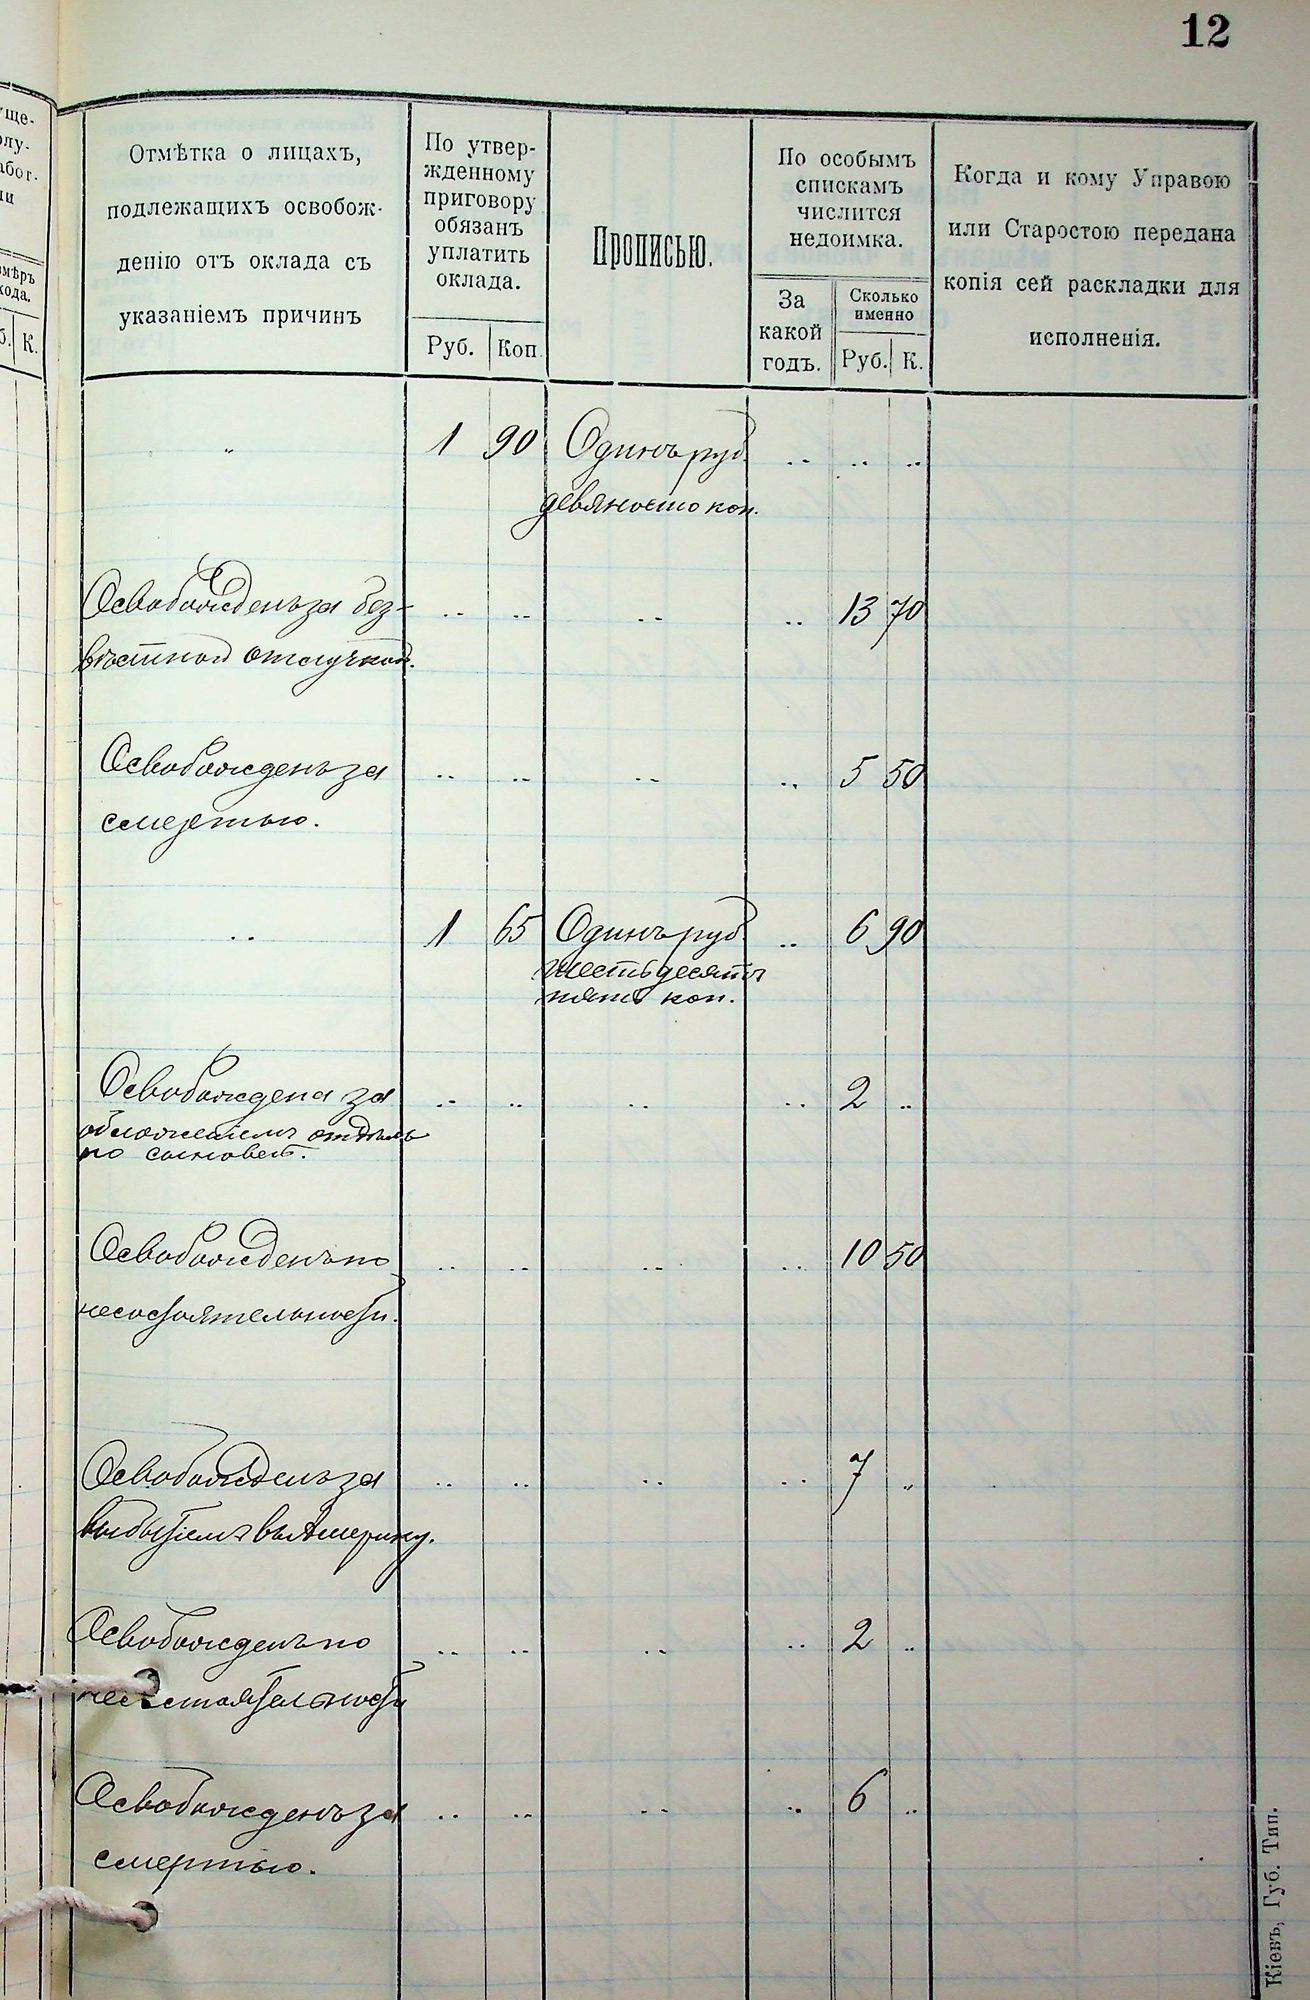 12
Отмѣтка о лицахъ,
подлежащихъ освобож-
денію отъ оклада съ
указаніемъ причинъ
По утвер-
жденному
приговору
обязанъ
уплатить
оклада.
Руб. Коп.
Прописью.
По особымъ
спискамъ
числится
недоимка.
За
какой
годъ.
Сколько
именно
Руб. К.
Когда и кому Управою
или Старостою передана
копія сей раскладки для
исполненія.
" 1 90 Одинъ руб. .. .. ..
девяносто коп.
Освобожденъ за без- .. .. .. .. 13 70
вѣстной отлучкой.
Освобожденъ за .. .. .. .. 5 50
смертью.
.. 1 65 Одинъ руб. .. 6 90
шестьдесятъ
пять коп.
Освобождена за .. .. .. .. 2 ..
обложеніемъ отдѣль
но сыновей.
Освобожденъ по .. .. .. .. 10 50
несостоятельности.
Освобожденъ за .. .. .. .. 7 ..
выбытіемъ въ Америку.
Освобожденъ по .. .. .. .. 2 ..
несостоятельности
Освобожденъ за .. .. .. .. 6 ..
смертью.
Кіевъ, Губ. Тип.